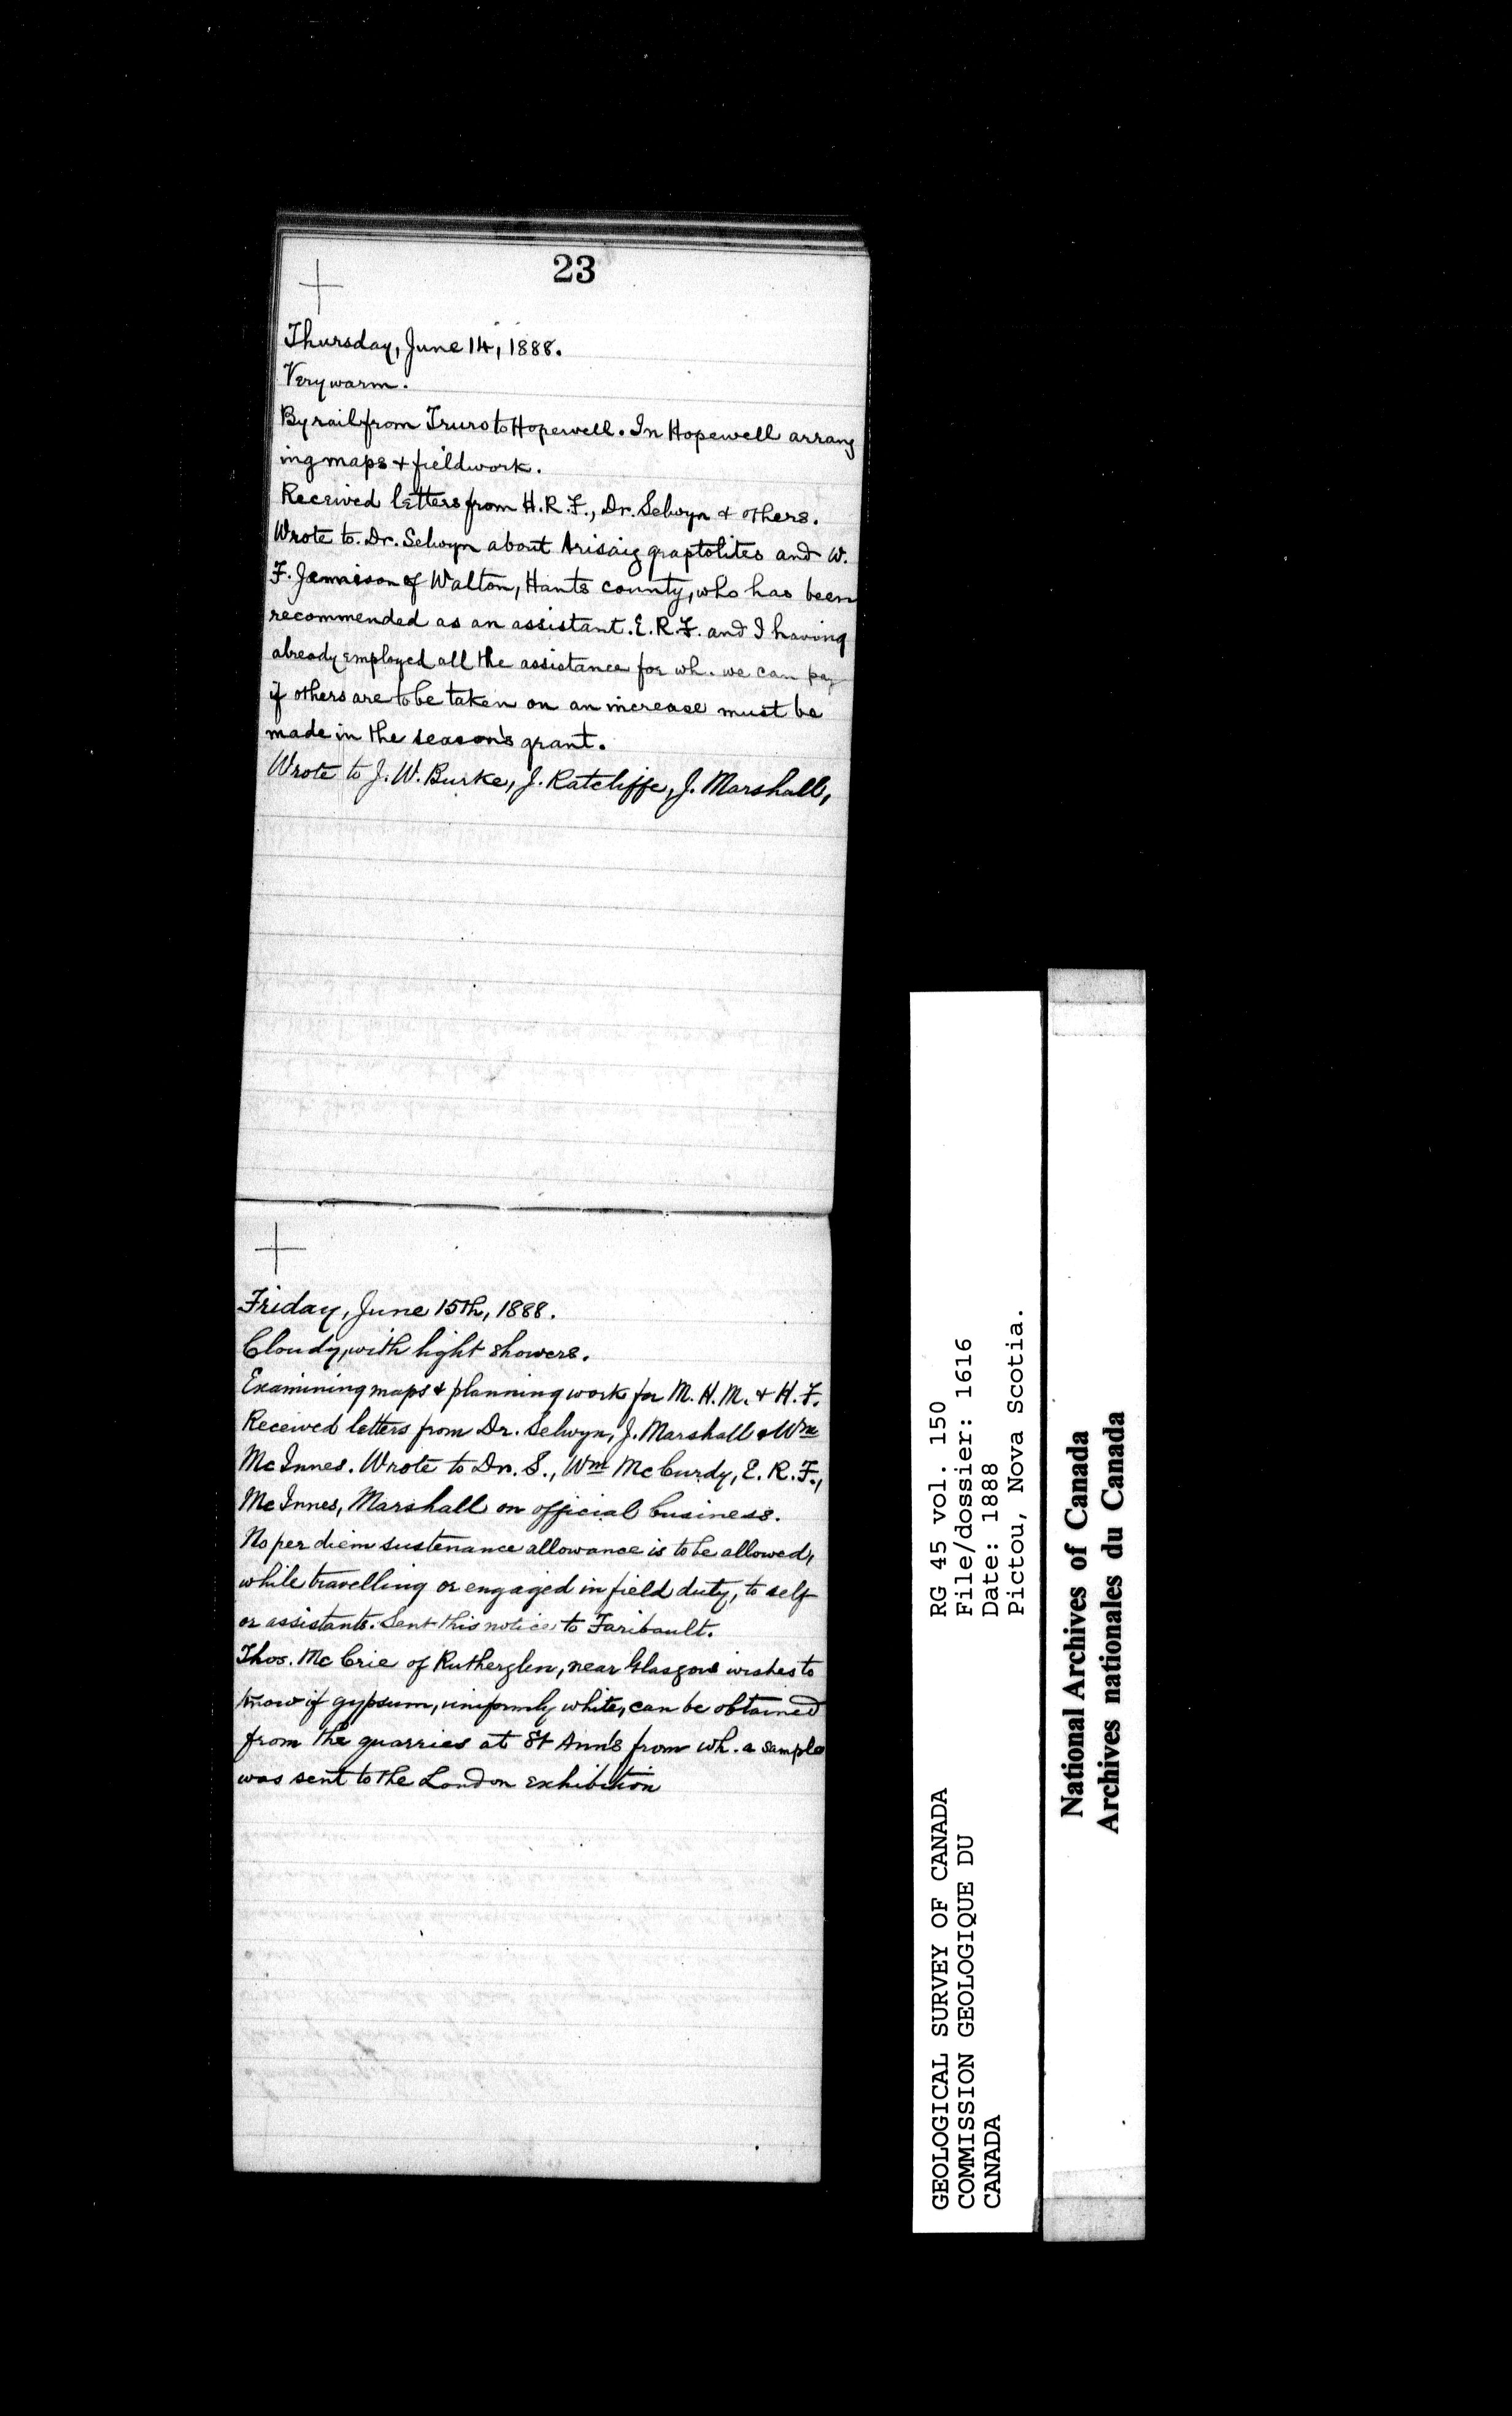 23
Thursday, June 14, 1888.
Very warm.
By rail from Truro to Hopewell. In Hopewell arrang
ing maps & fieldwork.
Received letters from H.R.F., Dr. Selwyn & others.
Wrote to Dr. Selwyn about Arisaig graptolites and W.
F. Jamieson of Walton, Hants county, who has been
recommended as an assistant. E.R.F. and I having
already employed all the assistance for wh. we can pay
if others are to be taken on an increase must be
made in the season's grant.
Wrote to J. W. Burke, J. Ratcliffe, J. Marshall,
Friday, June 15th, 1888.
Cloudy, with light showers.
Examining maps & planning work for M. H. M. & H. F.
Received letters from Dr. Selwyn, J. Marshall & Wm
McInnes. Wrote to Dr. S., Wm McCurdy, E. R. F.,
McInnes, Marshall on official business.
No per diem sustenance allowance is to be allowed,
while travelling or engaged in field duty, to self
or assistants. Sent this notice to Faribault.
Thos. McCrie of Rutherglen, near Glasgow wishes to
know if gypsum, uniformly white, can be obtained
from the quarries at St Ann's from wh. a sample
was sent to the London exhibition
GEOLOGICAL SURVEY OF CANADA
COMMISSION GEOLOGIQUE DU
CANADA
RG 45 vol. 150
File/dossier: 1616
Date: 1888
Pictou, Nova Scotia.
National Archives of Canada
Archives nationales du Canada